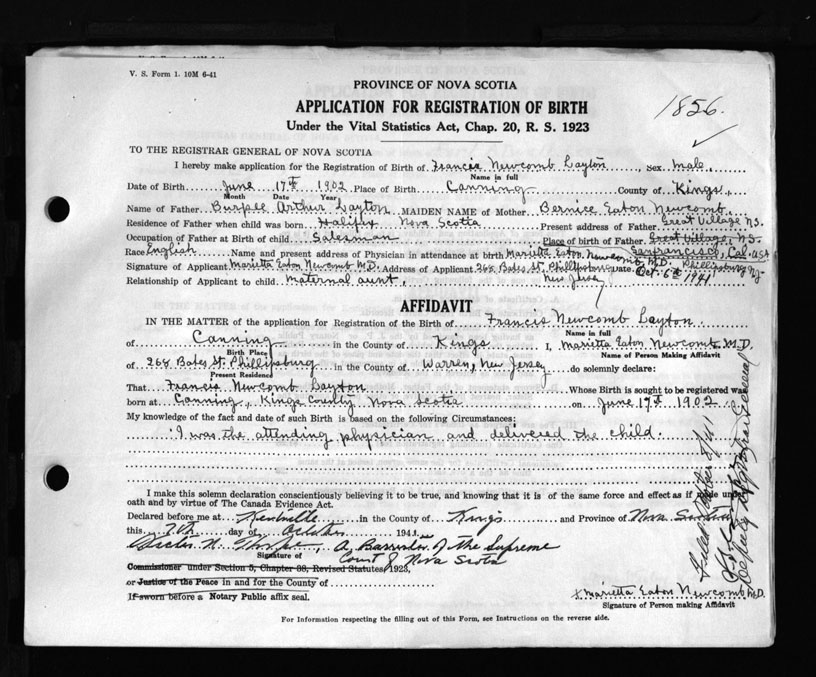 V. S. Form 1. 10M 6-41
PROVINCE OF NOVA SCOTIA
APPLICATION FOR REGISTRATION OF BIRTH
Under the Vital Statistics Act, Chap. 20, R. S. 1923
1856.
TO THE REGISTRAR GENERAL OF NOVA SCOTIA
I hereby make application for the Registration of Birth of Francis Newcomb Layton, sex male,
Name in full
Date of Birth June 17th 1902 Place of Birth Canning County of Kings,
Month Date Year
Name of Father Burpee Arthur Layton MAIDEN NAME of Mother Bernice Eaton Newcomb
Residence of Father when child was born Halifax Nova Scotia Present address of Father Great Village N.S.
Occupation of Father at Birth of child Salesman Place of birth of Father Great Village, N.S.
San Francisco, Cal. USA
Race English Name and present address of Physician in attendance at birth Mariette Eaton Newcomb, M.D. Phillipsburg NJ
Signature of Applicant Marietta Eaton Newcomb M.D. Address of Applicant 268 Bates St. Phillipsburg Date Oct. 6th 1941
New Jersey
Relationship of Applicant to child maternal aunt,
AFFIDAVIT
IN THE MATTER of the application for Registration of the Birth of Francis Newcomb Layton
Name in full
of Canning in the County of Kings I, Marietta Eaton Newcomb M.D.
Birth Place Name of Person Making Affidavit
of 268 Bates St. Phillipsburg in the County of Warren, New Jersey do solemnly declare:
Present Residence
That Francis Newcomb Layton Whose Birth is sought to be registered was
born at Canning, Kings County Nova Scotia on June 17th 1902
My knowledge of the fact and date of such Birth is based on the following Circumstances:
I was the attending physician and delivered the child.
I make this solemn declaration conscientiously believing it to be true, and knowing that it is of the same force and effect as if made under
oath and by virtue of The Canada Evidence Act.
Declared before me at Kentville in the County of Kings and Province of Nova Scotia
this 7th day of October 1941
A Barrister of the Supreme
Signature of Court of Nova Scotia
Commissioner under Section 5, Chapter 38, Revised Statutes 1923,
or Justice of the Peace in and for the County of
If sworn before a Notary Public affix seal.
x Marietta Eaton Newcomb M.D.
Signature of Person making Affidavit
For Information respecting the filling out of this Form, see Instructions on the reverse side.
Filed October 8/41
Deputy Registrar General